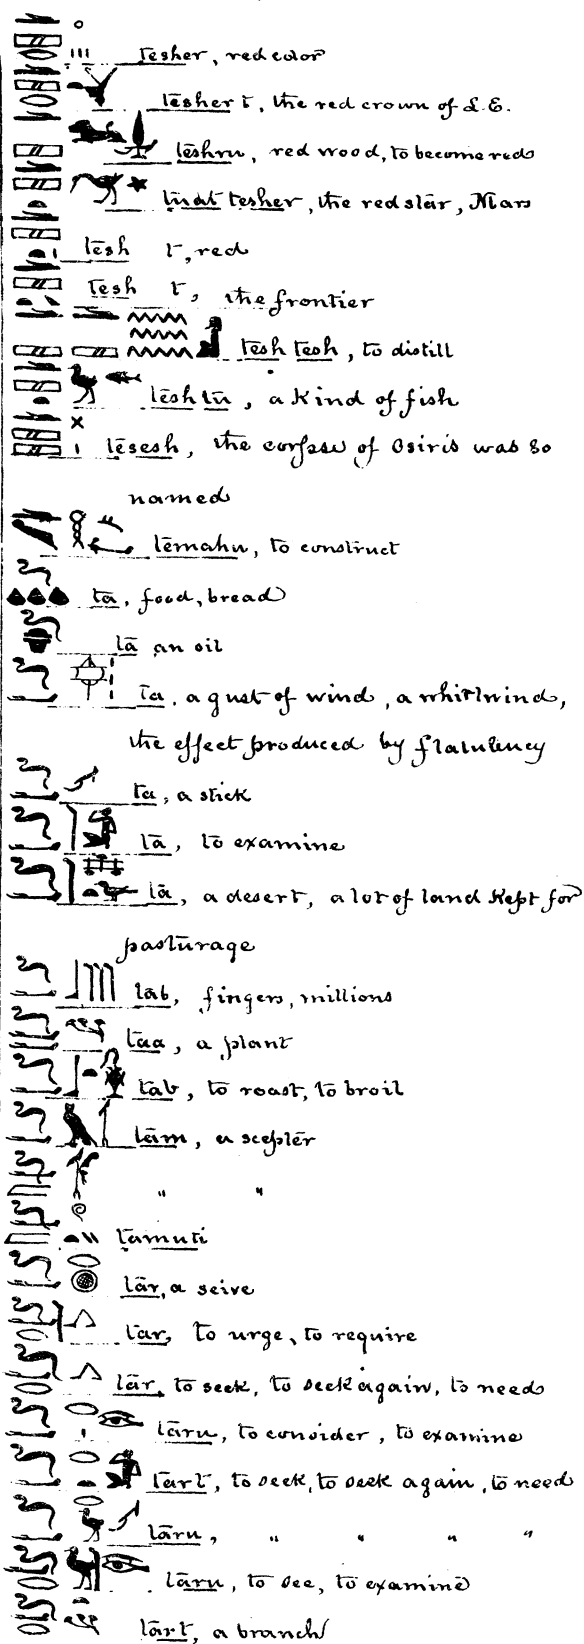 tesher, red color
tesher t, the red crown of L.E.
teshru, red wood, to become red
tuat tesher, the red star, Mars
tesh t, red
tesh t, the frontier
tesh tesh, to distill
tesh tu, a kind of fish
tesesh, the corpse of Osiris was so
named
temahu, to construct
ta, food, bread
ta an oil
ta, a gust of wind, a whirlwind,
the effect produced by flatulency
ta, a stick
ta, to examine
ta, a desert, a lot of land kept for
pasturage
tab, fingers, millions
taa, a plant
tab, to roast, to broil
tam, a scepter
" "
tamuti
tar, a seive
tar, to urge, to require
tar, to seek, to seek again, to need
taru, to consider, to examine
tart, to seek, to seek again, to need
taru, " " " "
taru, to see, to examine
tart, a branch